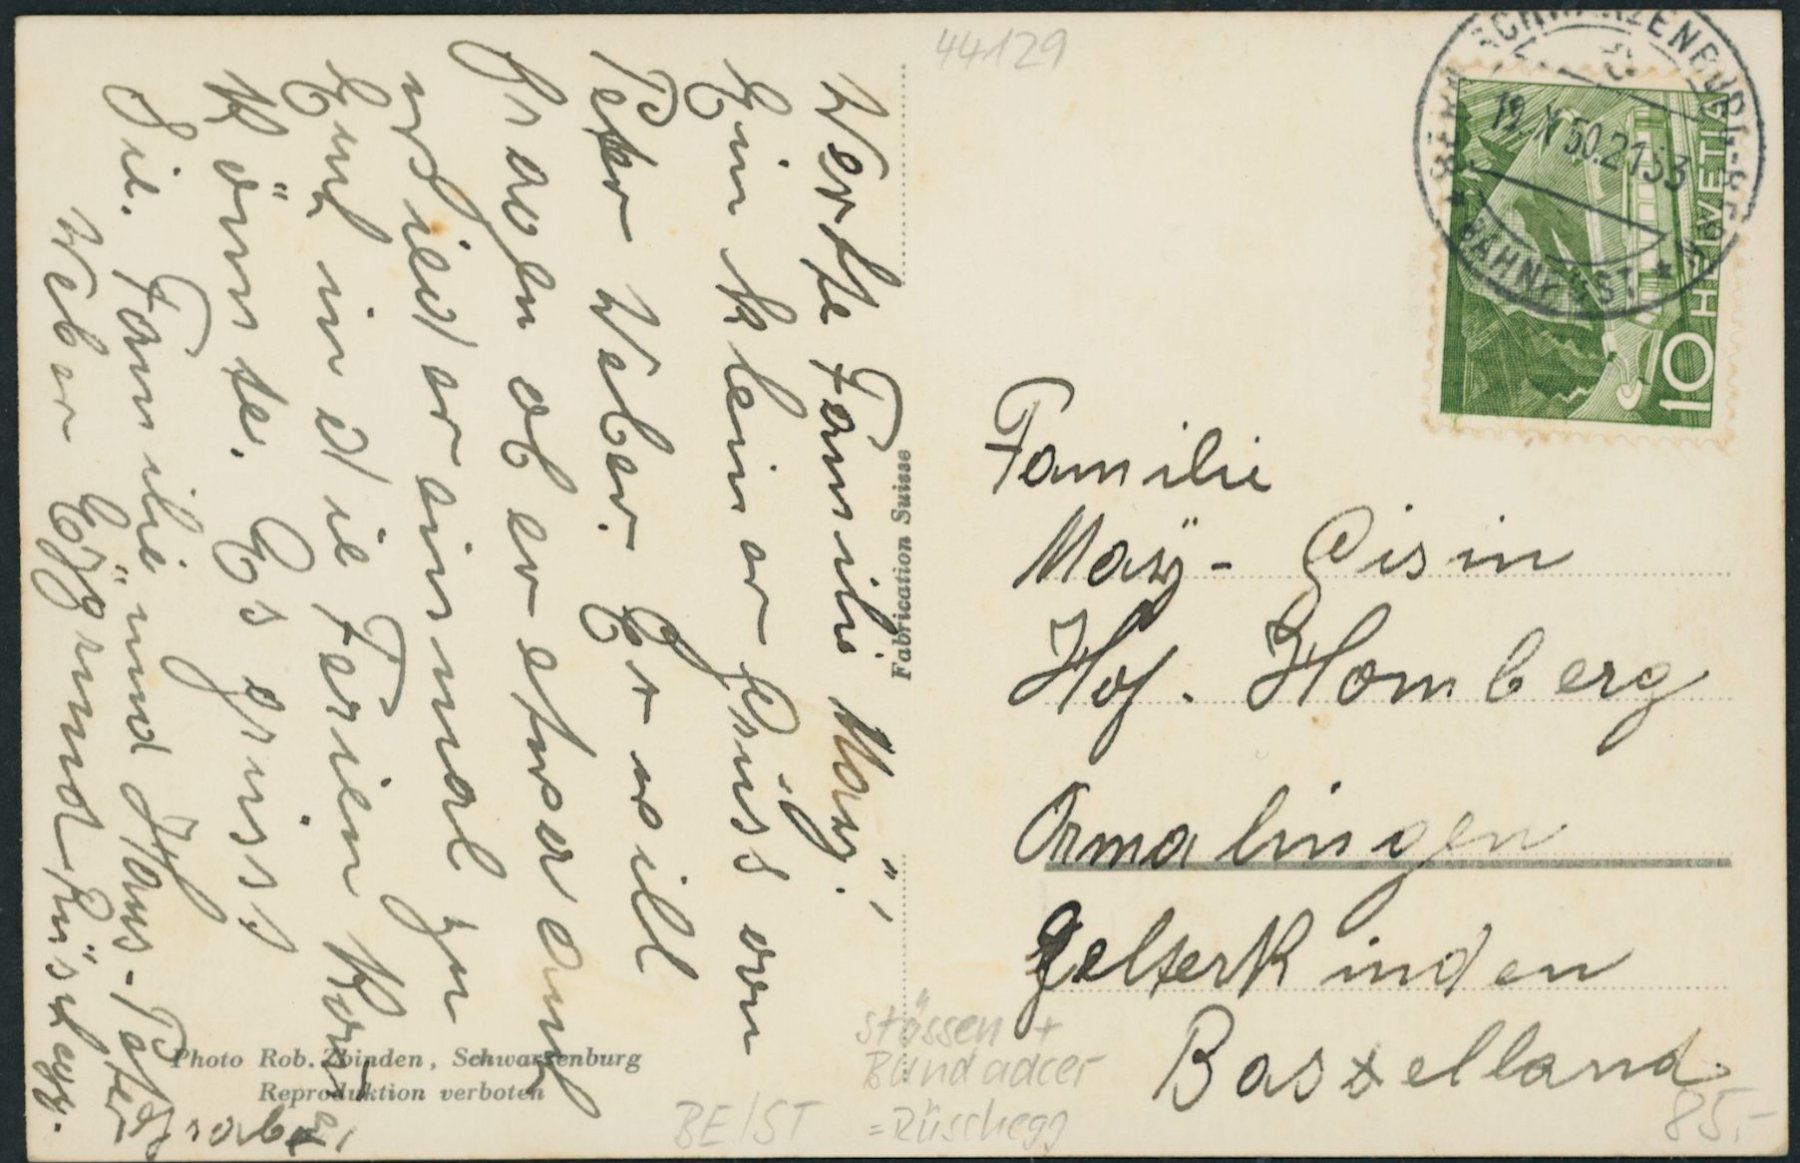 44129
BERN-SCHWARZENBURG
12.X.50.21
BAHNPOST
HELVETIA
10
Werte Familie Maÿ.
Ein kleiner Gruss von
Peter Weber. Er will
fragen ob er etwa auch
wieder einmal zu
Euch in die Ferien
Könnte. Es grüsst
Sie. Familie und Hans-Peter
Weber Eÿgrund, Rüschegg.
Fabrication Suisse
Photo Rob. Zbinden, Schwarzenburg
Reproduktion verboten
Familie
Maÿ- Gisin
Hof. Homberg
Ormalingen
Gelterkinden
Baselland.
stössen +
Bundacker
= Rüschegg
BE/ST
85.-